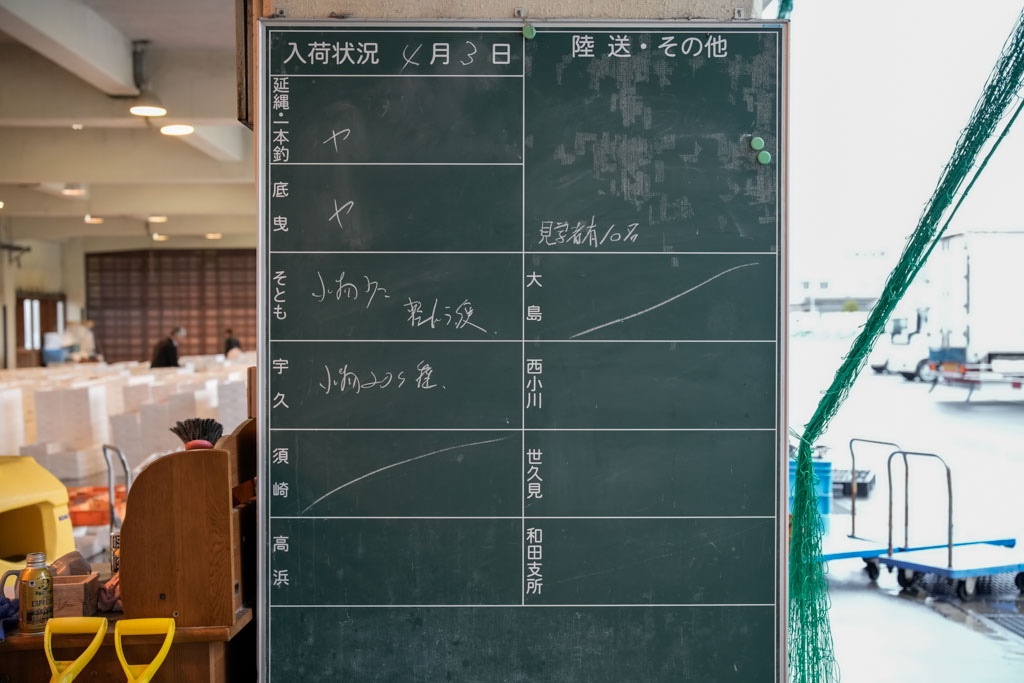 入荷状況 4月3日
延縄・一本釣 ヤ
底曳 ヤ
そとも 小物
宇久 小物 20
須崎
高浜
陸送・その他
見学者有10名
大島
西小川
世久見
和田支所